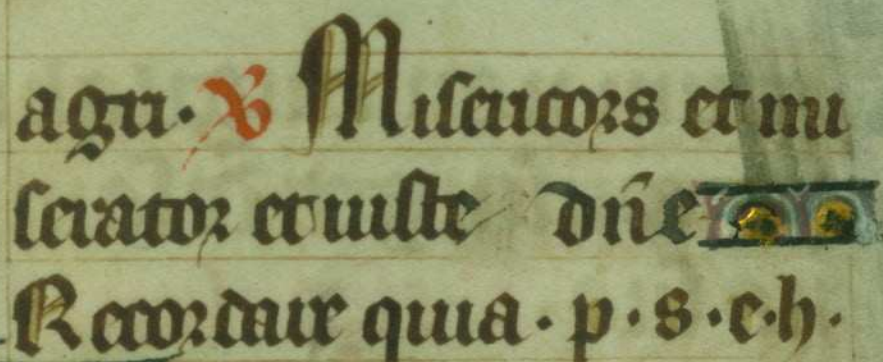 agri. ℣ Misericors et mi
serator et iuste dn̄e
Recordare quia. p. s. e. h.